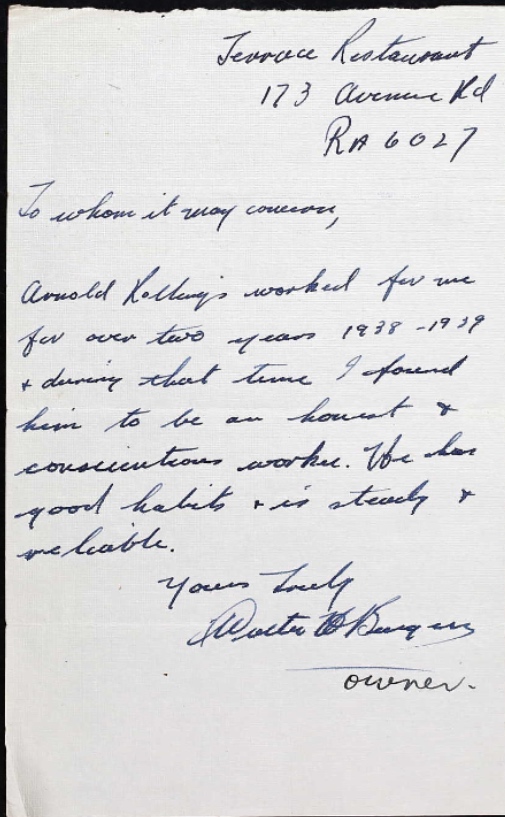 Terrace Restaurant
173 Avenue Rd
RA 6027
To whom it may concern,
Arnold worked for me
for over two years 1938-1939
+ during that time I found
him to be an honest &
conscientious worker. He has
good habits + is steady &
reliable.
Yours Truly
Walter
owner.